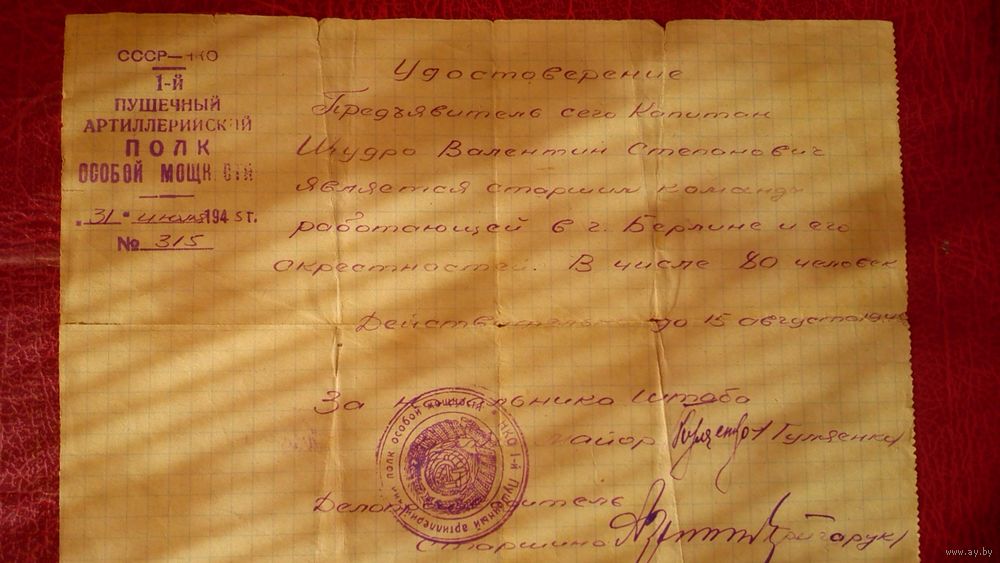 СССР—НКО
1-й
ПУШЕЧНЫЙ
АРТИЛЛЕРИЙСКИЙ
ПОЛК
ОСОБОЙ МОЩНОСТИ
"31" июля 1945 г.
№ 315
Удостоверение
Предъявитель сего Капитан
Шудро Валентин Степонович
является старшим команды
работающей в г. Берлине и его
окрестностей. В числе 80 человек
Действительно до 15 августа
За начальника штаба
майор
Делопроизводитель
Старшина
НКО 1-й Пушечный артиллерийский полк особой мощности
www.ay.by